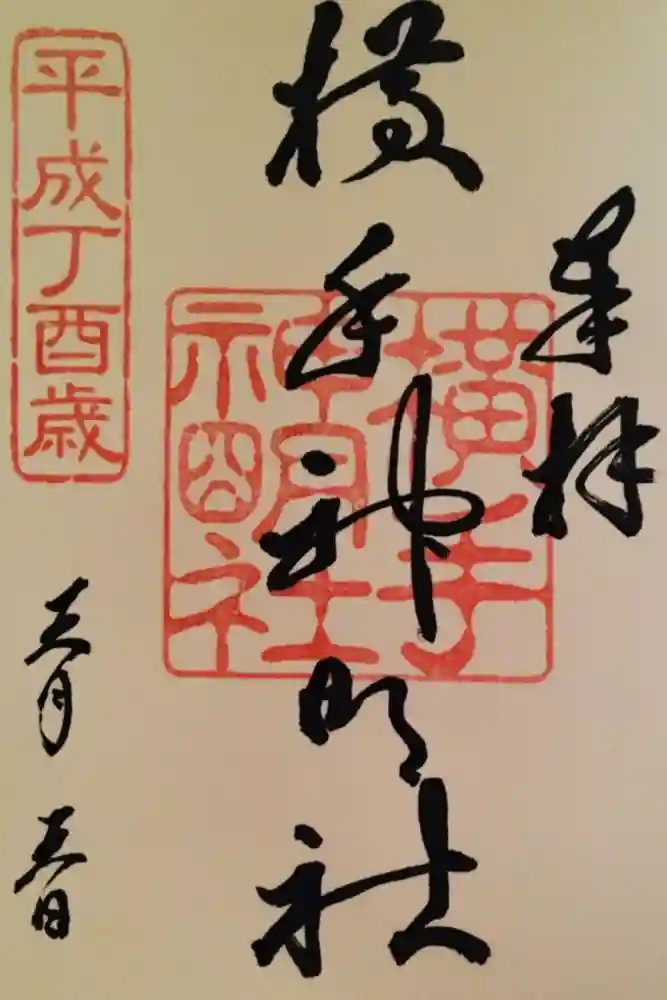 奉拝
横手神明社
横手
神明社
平成丁酉歳